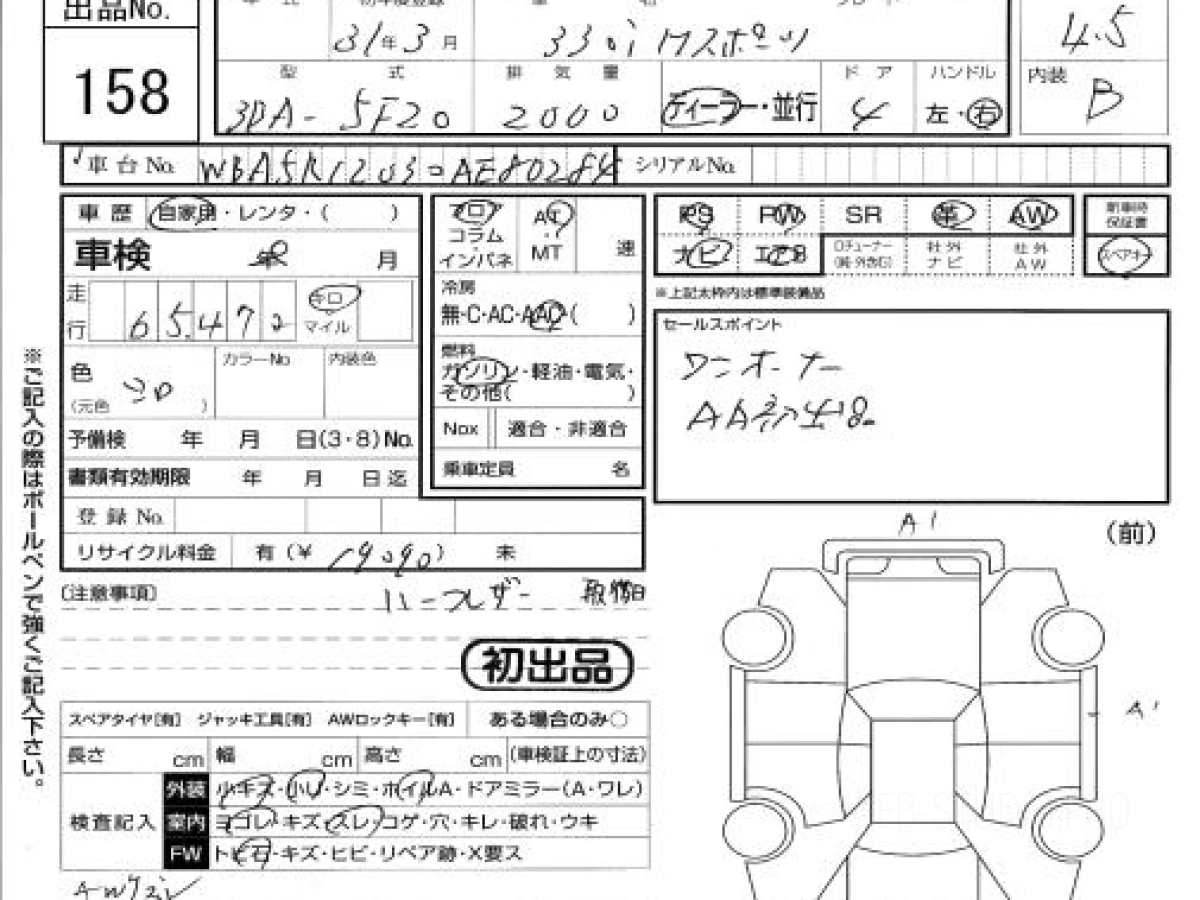 出品No. 158
31年3月 330i Mスポーツ 4.5
型式 排気量 ドア ハンドル 内装
3DA-5F20 2000 ディーラー・並行 4 左・右 B
車台No. シリアルNo.
車歴 自家用・レンタ・( )
車検 年 月
走行 65,472 キロ マイル
色 (元色 ) カラーNo 内装色
予備検 年 月 日(3・8)No.
書類有効期限 年 月 日迄
登録No.
リサイクル料金 有(¥ 19090) 未
フロア コラム インパネ
AT MT 速
冷房
無・C・AC・AAC( )
燃料
ガソリン・軽油・電気・
その他( )
Nox 適合・非適合
乗車定員 名
PS PW SR 革 AW 新車時保証書
ナビ エアB Dチューナー 社外ナビ 社外AW スペアキー
※上記太枠内は標準装備品
セールスポイント
ワンオーナー
AA初出品
(注意事項)
初出品
スペアタイヤ[有] ジャッキ工具[有] AWロックキー[有] ある場合のみ○
長さ cm 幅 cm 高さ cm (車検証上の寸法)
検査記入
外装 小キズ・小凹・シミ・ホイルA・ドアミラー(A・ワレ)
案内 ヨゴレ・キズ・スレ・コゲ・穴・キレ・破れ・ウキ
FW トビ石・キズ・ヒビ・リペア跡・X要ス
※ご記入の際はボールペンで強くご記入下さい。
A1 (前)
A1